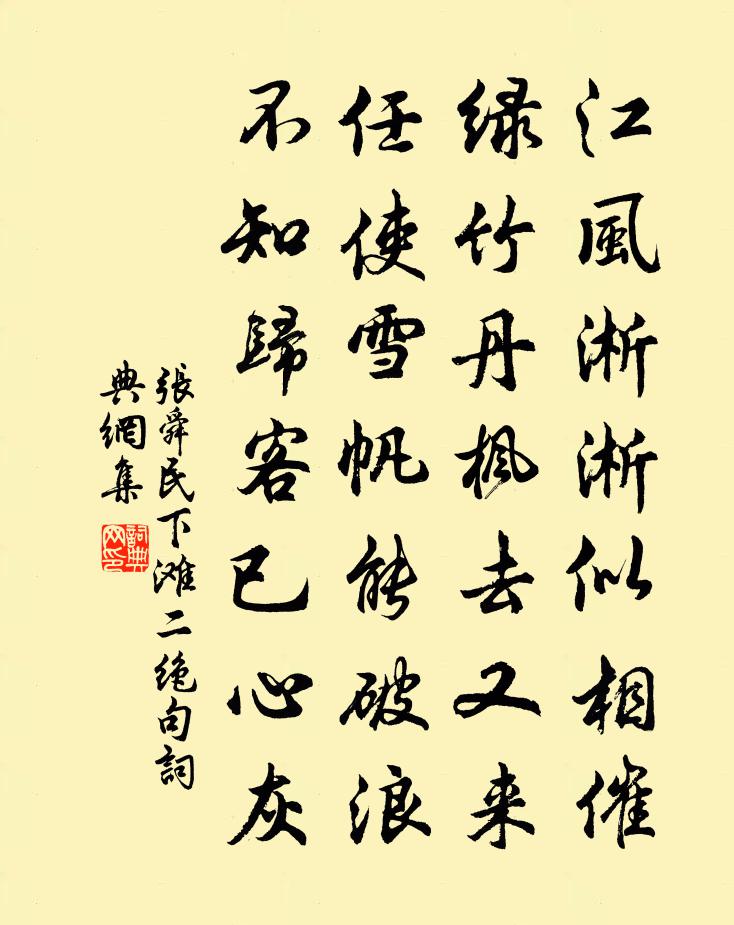 江風淅淅似相催
绿竹丹枫去又来
任使雪帆能破浪
不知歸客已心灰
張舜民下滩二绝句詞
典網集
詞典
网印